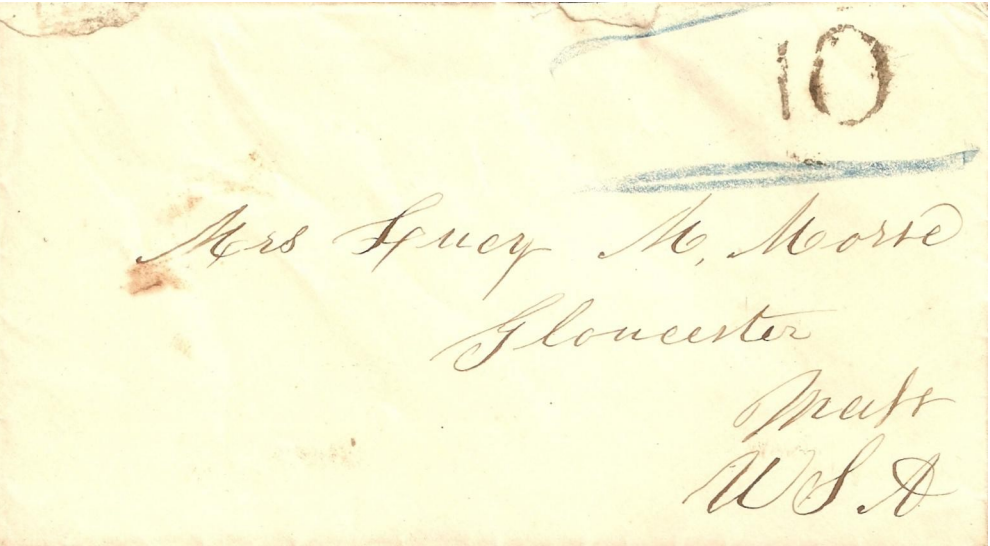 10
Mrs Lucy M. Morse
Gloucester
Mass
U S. A